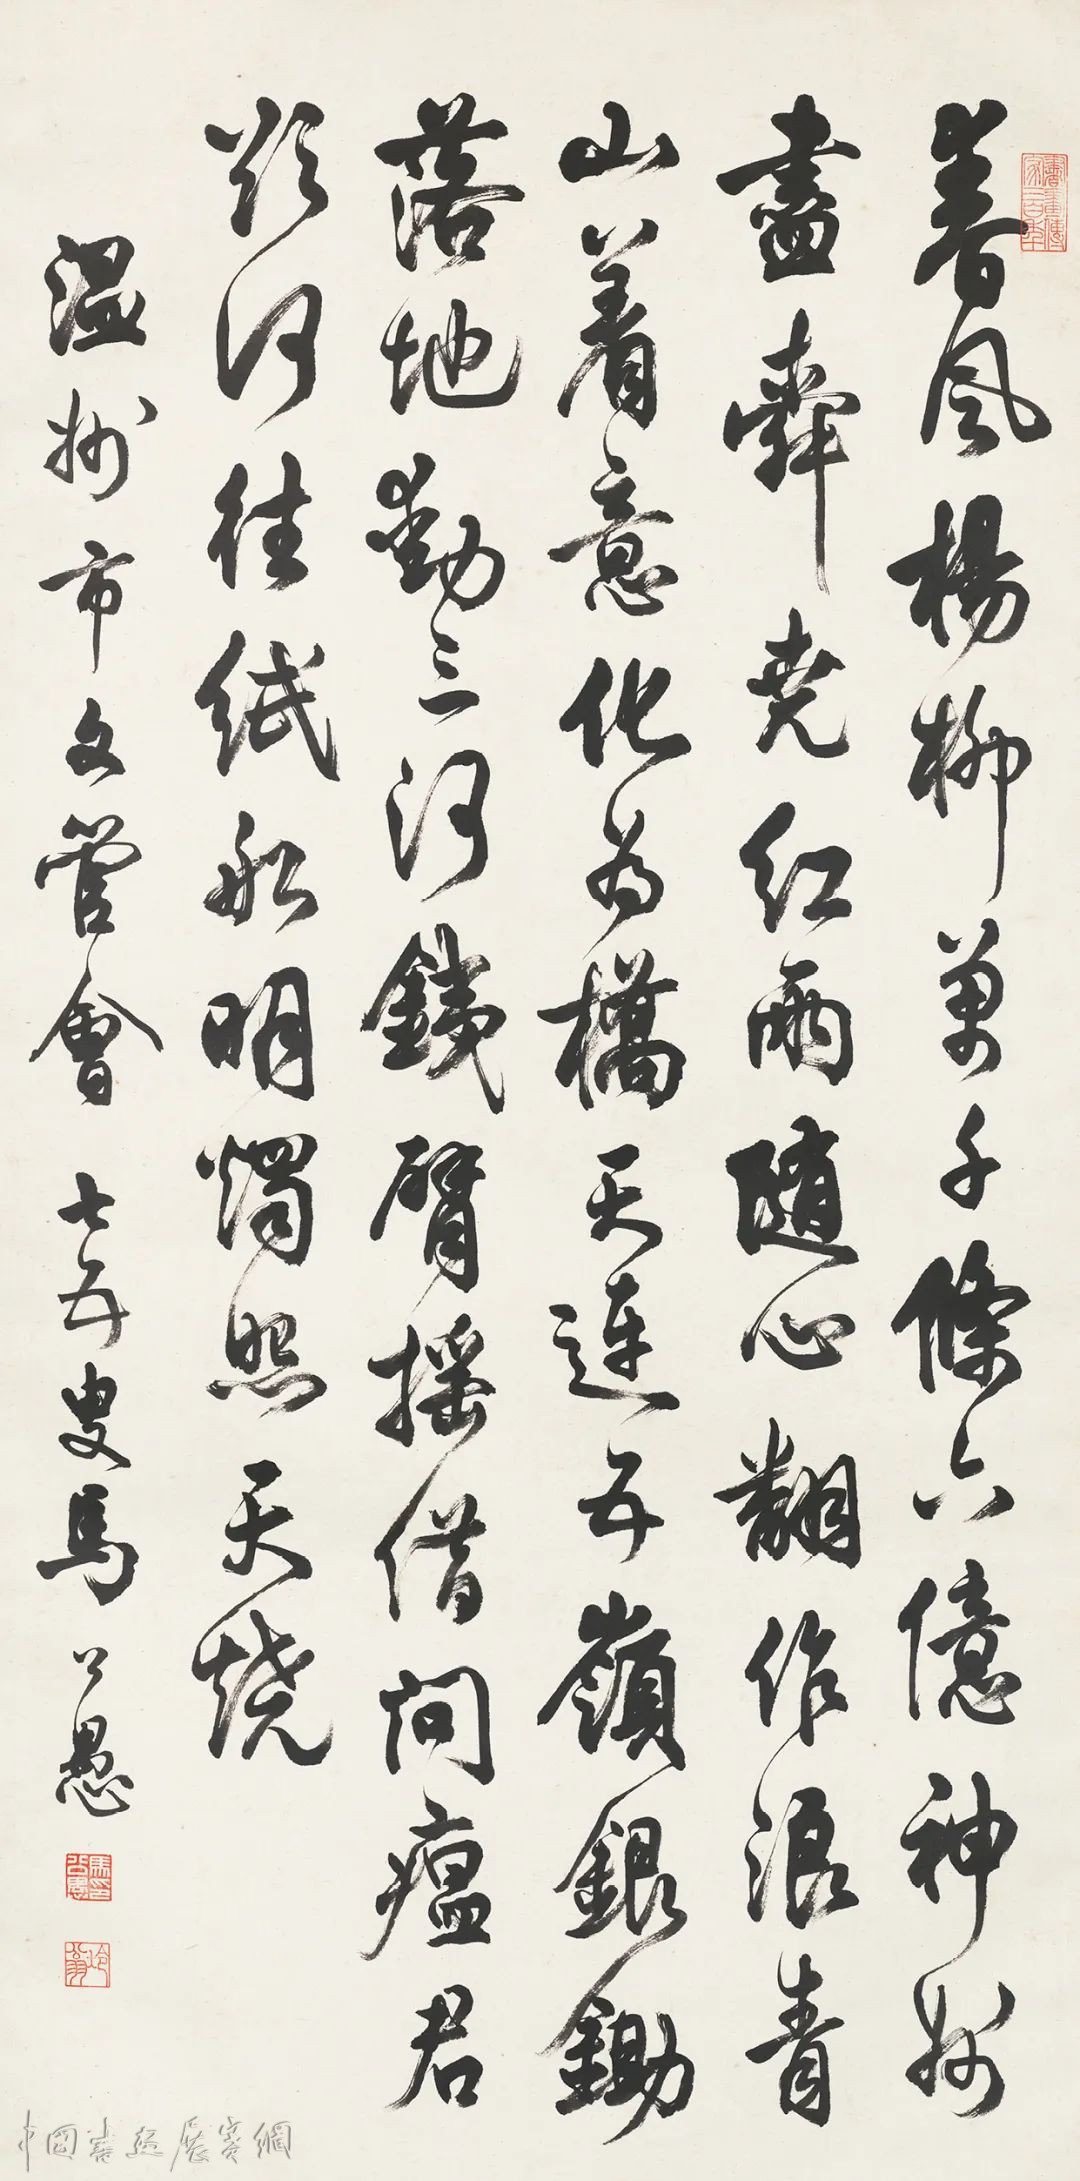 書畫傳家三百年
春風楊柳萬千條六億神州
盡舜堯紅雨隨心翻作浪青
山着意化為橋天連五嶺銀鋤
落地動三河鐵臂搖借問瘟君
欲何往紙船明燭照天燒
溫州市文管會 七五叟馬公愚
馬印公愚
冷翁
中國書法展賽網